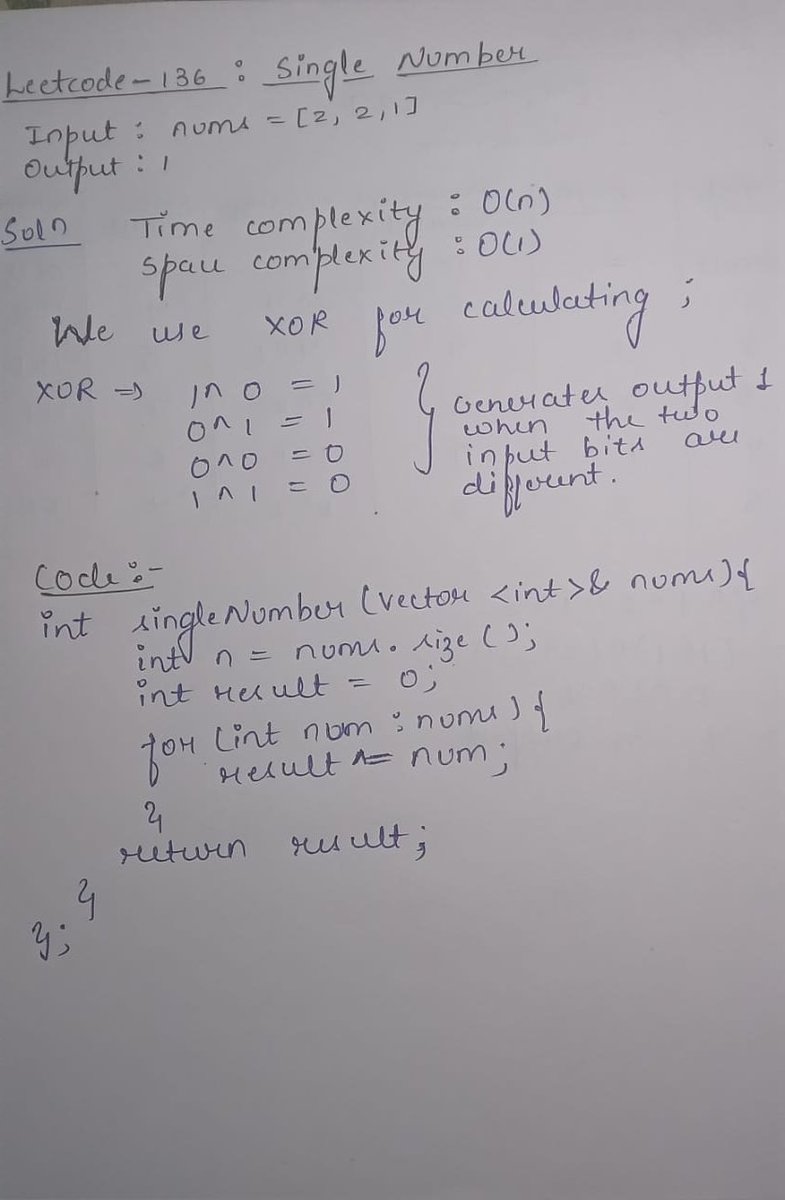 Leetcode-136 : Single Number
Input : nums = [2, 2, 1]
Output : 1
Soln Time complexity : O(n)
Space complexity : O(1)
We use XOR for calculating ;
XOR ⇒ 1 ^ 0 = 1
0 ^ 1 = 1
0 ^ 0 = 0
1 ^ 1 = 0
} Generates output 1
when the two
input bits are
different.
Code :-
int singleNumber (vector <int>& nums) {
int n = nums.size ();
int result = 0;
for (int num : nums) {
result ^= num;
}
return result;
}
};